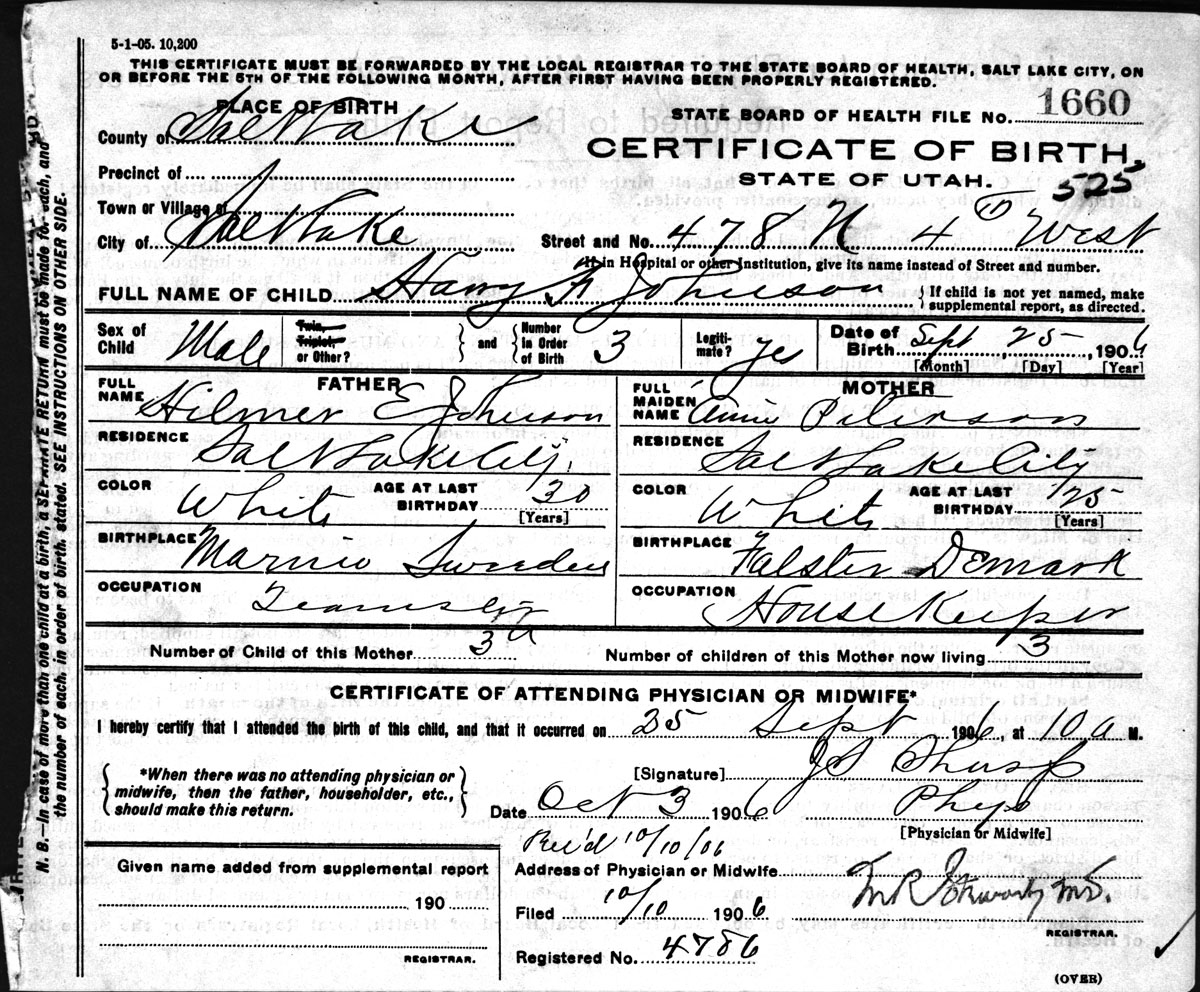 5-1-05. 10,200
THIS CERTIFICATE MUST BE FORWARDED BY THE LOCAL REGISTRAR TO THE STATE BOARD OF HEALTH, SALT LAKE CITY, ON
OR BEFORE THE 5TH OF THE FOLLOWING MONTH, AFTER FIRST HAVING BEEN PROPERLY REGISTERED.
PLACE OF BIRTH
STATE BOARD OF HEALTH FILE NO. 1660
County of Salt Lake
CERTIFICATE OF BIRTH,
Precinct of
STATE OF UTAH. 525
Town or Village of
City of Salt Lake Street and No. 478 N 4 West
If in Hospital or other Institution, give its name instead of Street and number.
FULL NAME OF CHILD Harry Johnson { If child is not yet named, make supplemental report, as directed.
Sex of Child Male Twin, Triplet, or Other? } and { Number in Order of Birth 3 Legitimate? yes Date of Birth Sept 25, 1906
[Month] [Day] [Year]
FATHER MOTHER
FULL NAME Hilmer E Johnson FULL MAIDEN NAME Annie Peterson
RESIDENCE Salt Lake City. RESIDENCE Salt Lake City
COLOR White AGE AT LAST BIRTHDAY 30 [Years] COLOR White AGE AT LAST BIRTHDAY 25 [Years]
BIRTHPLACE Sweden BIRTHPLACE Falster Demark
OCCUPATION Teamster OCCUPATION House Keeper
Number of Child of this Mother 3 Number of children of this Mother now living 3
CERTIFICATE OF ATTENDING PHYSICIAN OR MIDWIFE*
I hereby certify that I attended the birth of this child, and that it occurred on 25 Sept 1906, at 10 a M.
{ *When there was no attending physician or midwife, then the father, householder, etc., should make this return. }
[Signature]
Date Oct 3 1906 Phys
[Physician or Midwife]
Rec'd 10/10/06
Given name added from supplemental report
Address of Physician or Midwife
190
Filed 10/10 1906
REGISTRAR.
REGISTRAR.
Registered No. 4786
(OVER)
N. B.—In case of more than one child at a birth, a SEPARATE RETURN must be made for each, and
the number of each, in order of birth, stated. SEE INSTRUCTIONS ON OTHER SIDE.